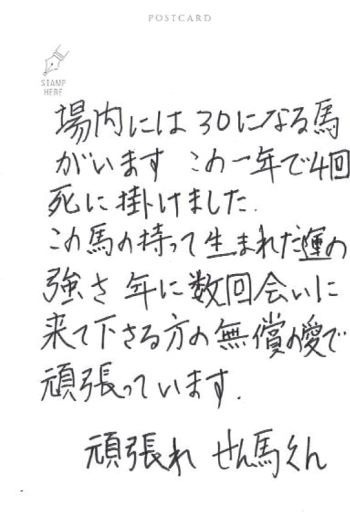 POSTCARD
STAMP
HERE
場内には30になる馬
がいます この一年で4回
死に掛けました.
この馬の持って生まれた運の
強さ 年に数回会いに
来て下さる方の無償の愛で
頑張っています.
頑張れ せん馬くん